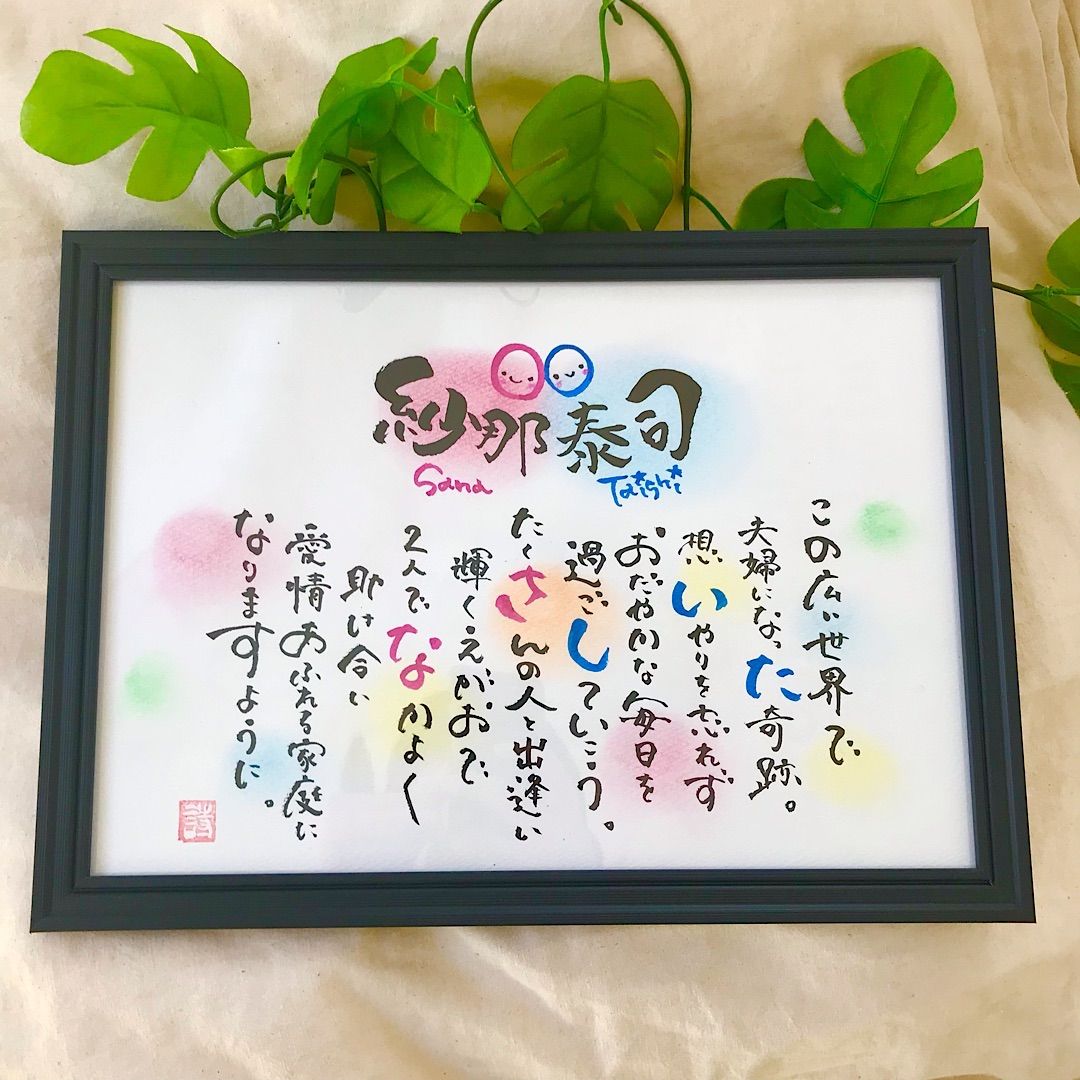 紗那 泰司
Sana Taishi
この広い世界で
夫婦になった奇跡。
想いやりを忘れず
おだやかな毎日を
過ごしていこう。
たくさんの人と出逢い
輝くえがおで
2人でなかよく
助け合い
愛情あふれる家庭に
なりますように。
詩